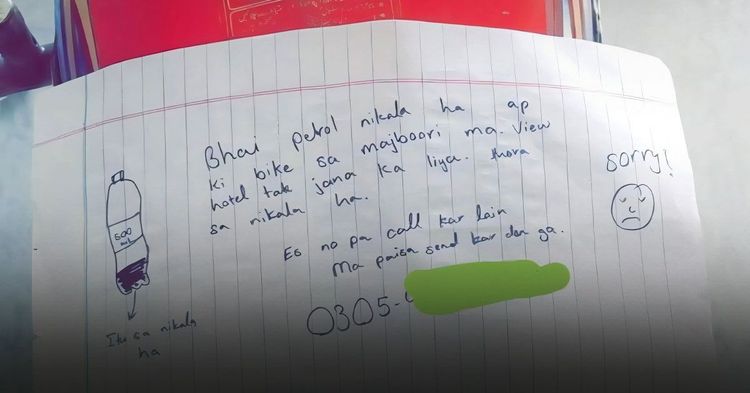 Bhai petrol nikala ha ap
ki bike sa majboori ma. View
hotel tak jana ka liya. thora
sa nikala ha.
Es no pa call kar lain
Ma paisa send kar don ga.
0305-
sorry!
500
ml
Itu sa nikala
ha